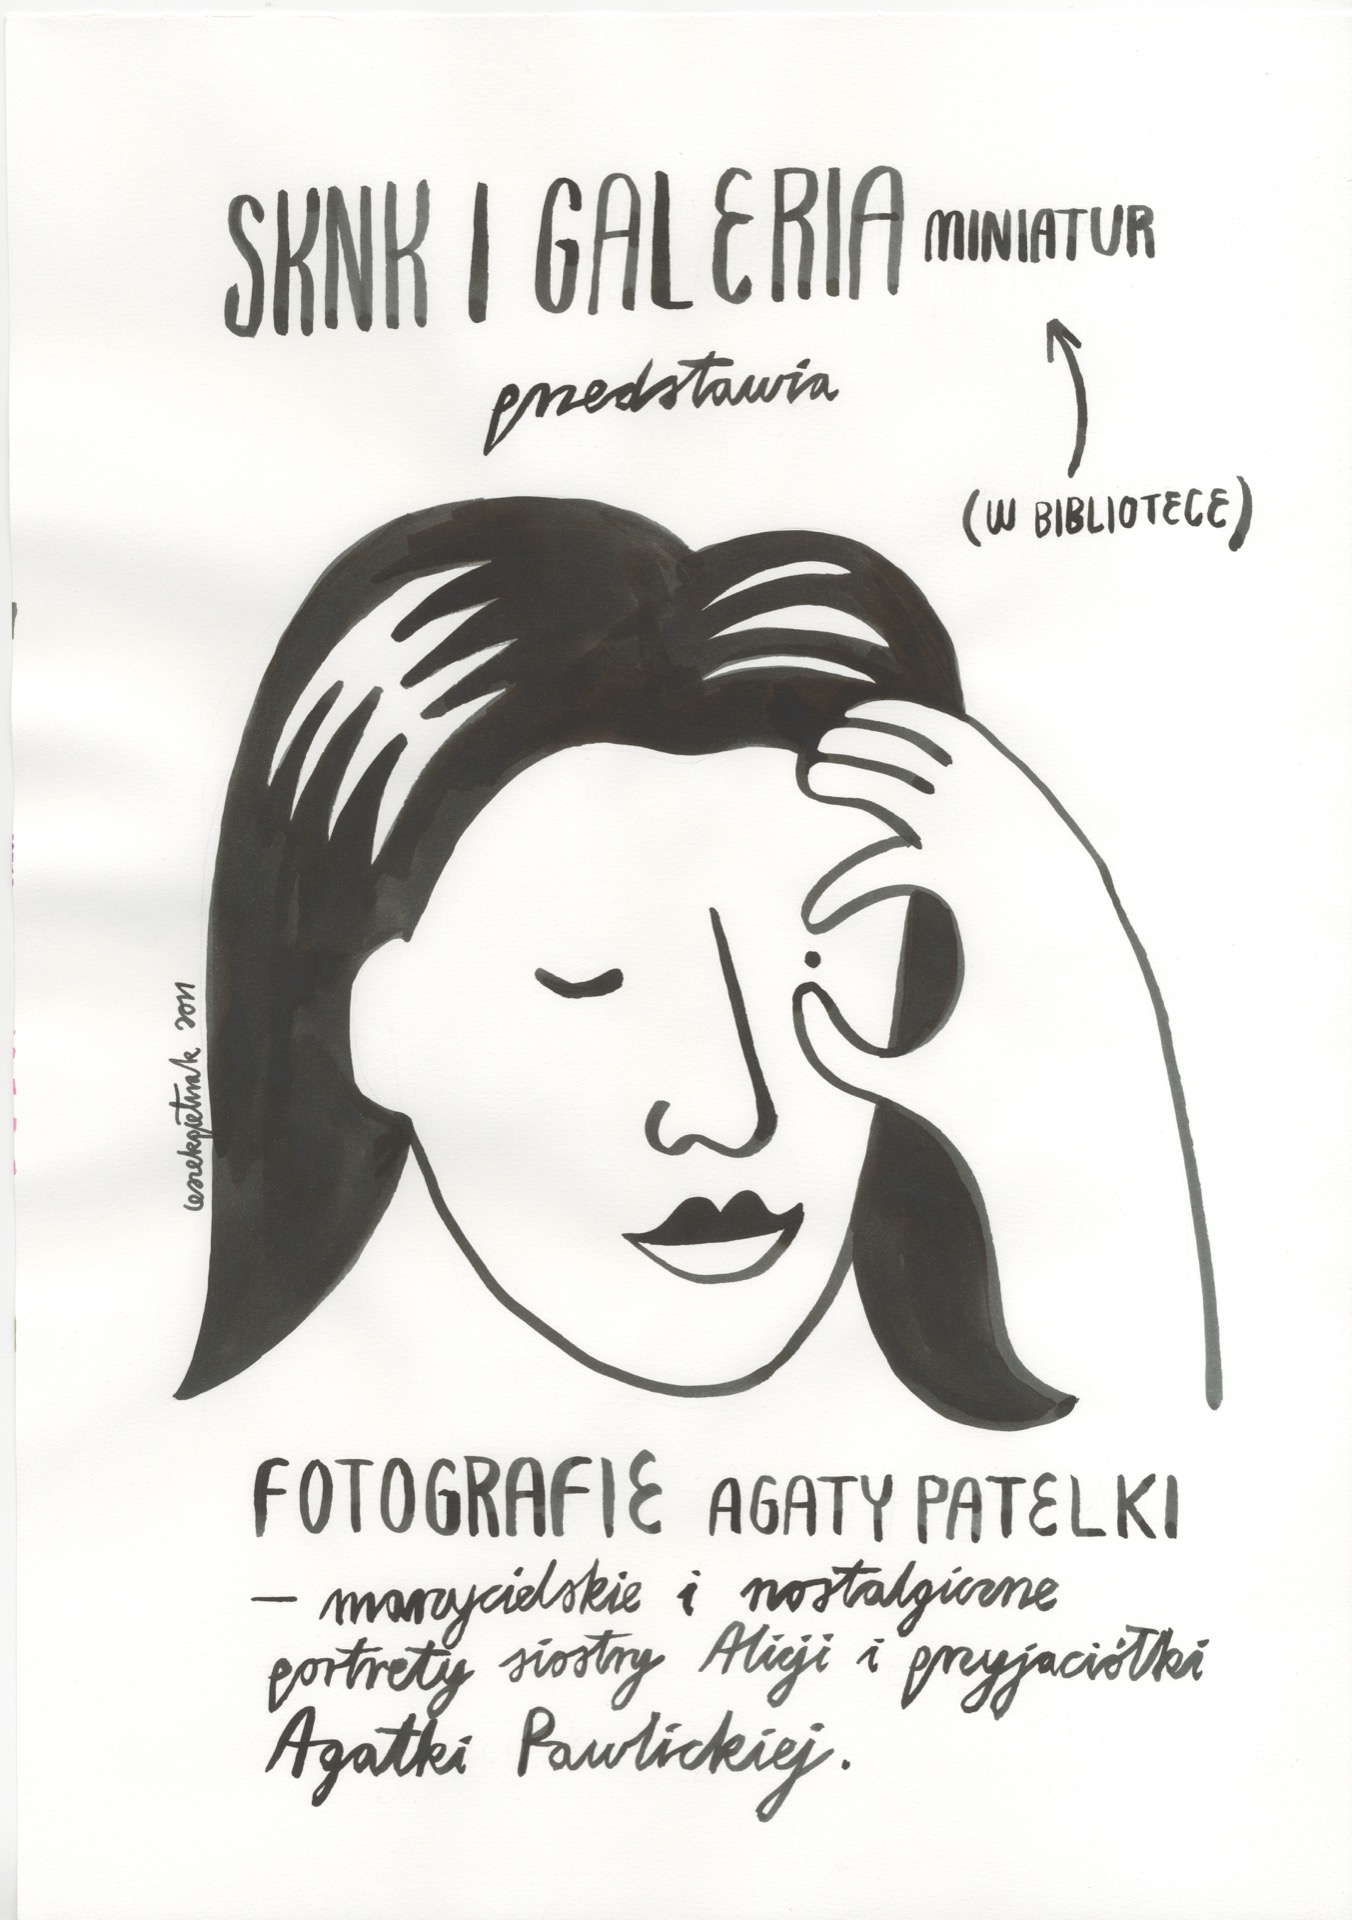 SKNK I GALERIA MINIATUR
przedstawia
(W BIBLIOTECE)
leszekpietrzak 2011
FOTOGRAFIE AGATY PATELKI
— marzycielskie i nostalgiczne
portrety siostry Alicji i przyjaciółki
Agatki Pawlickiej.